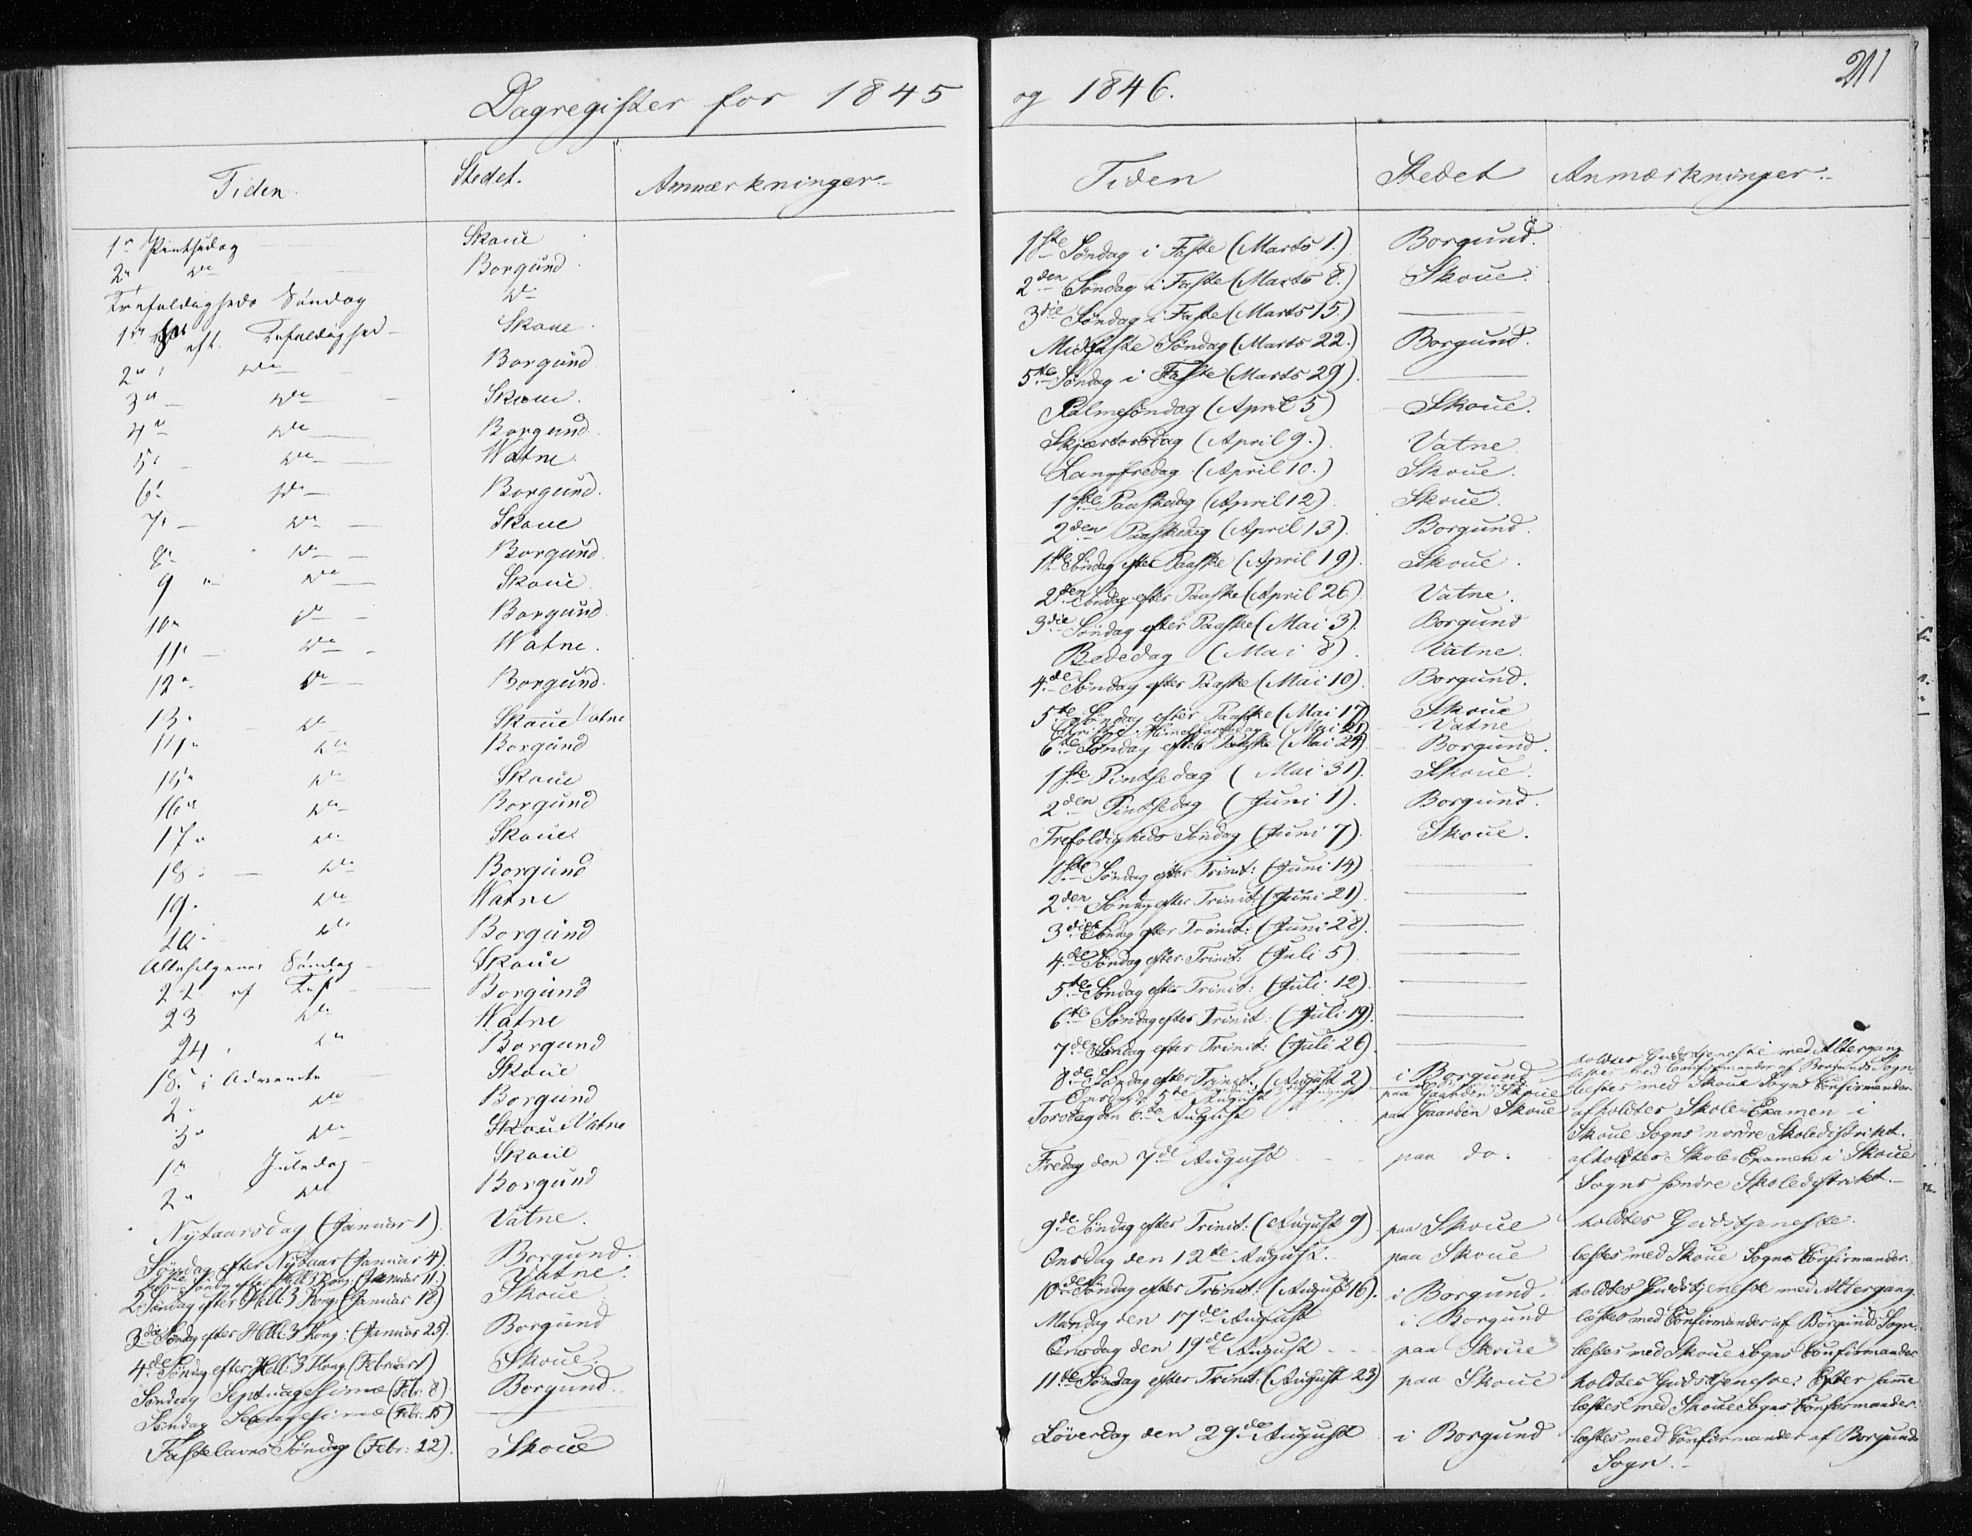 211
Dagregister for 1845
Tiden. Stedet. Anmærkninger.
1n Pintsedag Skoue
2n do Borgund
Trefoldigheds Søndag do
1n eft. Trefoldighed Skoue
2n do Borgund
3n do Skoue.
4n do Borgund
5n do Watne
6n do Borgund.
7n do Skoue
8n do Borgund
9n do Skoue
10n do Borgund
11n do Watne.
12n do Borgund.
13n do Skoue Vatne
14n do Borgund
15n do Skoue
16n do Borgund
17n do Skoue
18n do Borgund
19n do Watne
20n do Borgund
Allehelgenes Søndag Skoue
22 ef Tref Borgund
23 do Watne
24 do Borgund
1n S. i Advendte Skoue
2n do Borgund
3n do Skoue Vatne
1n Juledag Skoue
2n do Borgund
Nytaarsdag (Januar 1). Vatne.
Søndag efter Nytaar (Januar 4). Borgund.
1ste Søndag efter Hell. 3 Kong: (Januar 11.) Vatne.
2. Søndag efter Hell: 3 Kong: (Januar 18) Skoue
3die Søndag efter Hell: 3 Kong: (Januar 25). Borgund
4de Søndag efter Hell: 3 Kong. (Februar 1) Skoue.
Søndag Septuagesima (Febr: 8). Borgund.
Søndag Sexagesima (Febr. 15)
Fastelavns Søndag (Febr: 22). Skoue
og 1846.
Tiden Stedet Anmærkninger.
1ste Søndag i Faste (Marts 1.) Borgund.
2den Søndag i Faste (Marts 8.) Skoue.
3die Søndag i Faste (Marts 15.)
Midfaste Søndag (Marts 22.) Borgund.
5te Søndag i Faste (Marts 29).
Palmesøndag (April 5) Skoue.
Skjærtorsdag (April 9.) Vatne
Langfredag (April 10.) Skoue.
1ste Paaskedag (April 12). Skoue.
2den Paaskedag (April 13). Borgund.
1ste Søndag efter Paaske (April 19). Skoue.
2den Søndag efter Paaske (April 26). Vatne.
3die Søndag efter Paaske (Mai 3). Borgund
Bededag (Mai 8). Vatne.
4de Søndag efter Paaske (Mai 10). Borgund.
5te Søndag efter Paaske (Mai 17) Skoue
Christi Himmelfartsdag (Mai 21) Vatne
6te Søndag efter Paaske (Mai 24) Borgund.
1ste Pintsedag (Mai 31). Skoue.
2den Pintsedag (Juni 1). Borgund.
Trefoldigheds Søndag (Juni 7). Skoue.
1ste Søndag efter Trinit: (Juni 14)
2den Søndag efter Trinit: (Juni 21).
3die Søndag efter Trinit: (Juni 28).
4de Søndag efter Trinit: (Juli 5).
5te Søndag efter Trinit: (Juli 12).
6te Søndag efter Trinit: (Juli 19).
7de Søndag efter Trinit: (Juli 26).
8de Søndag efter Trinit: (August 2) i Borgund holdtes Gudstjeneste med Altergang
læstes med Confirmander af Borgunds Sogn
Onsdag d. 5te August paa Gaarden Skoue læstes med Skoue Sogns Confirmander
Torsdag den 6te August paa Gaarden Skoue afholdtes Skole-Examen i
Skoue Sogns nordre Skoledistrikt.
Fredag den 7de August paa do. afholdtes Skole-Examen i Skoue
Sogns søndre Skoledistrikt.
9de Søndag efter Trinit: (August 9). paa Skoue holdtes Gudstjeneste.
Onsdag den 12te August. paa Skoue læstes med Skoue Sogns Confirmander.
10de Søndag efter Trinit: (August 16). i Borgund. holdtes Gudstjeneste med Altergang.
Mandag den 17de August i Borgund læstes med Confirmander af Borgunds Sogn.
Onsdag den 19de August paa Skoue læstes med Skoue Sogns Confirmander
11te Søndag efter Trinit: (August 23) paa Skoue holdtes Gudstjeneste; Efter samme
læstes med Skoue Sogns Confirmander.
Løverdag den 29de August i Borgund læstes med Confirmander af Borgunds
Sogn.